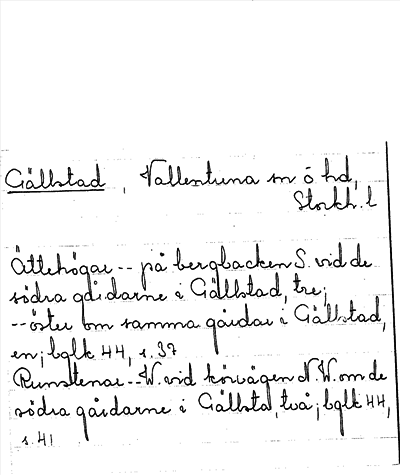 Gällstad, Vallentuna sn ö hd,
Stockh. l
Ättehögar -- på bergbacken S. vid de
södra gårdarne i Gällstad, tre;
-- öster om samma gårdar i Gällstad,
en; bglk 44, s. 37
Runstenar -- W. vid körvägen N.W. om de
södra gårdarne i Gällsta, två; bglk 44,
s. 41